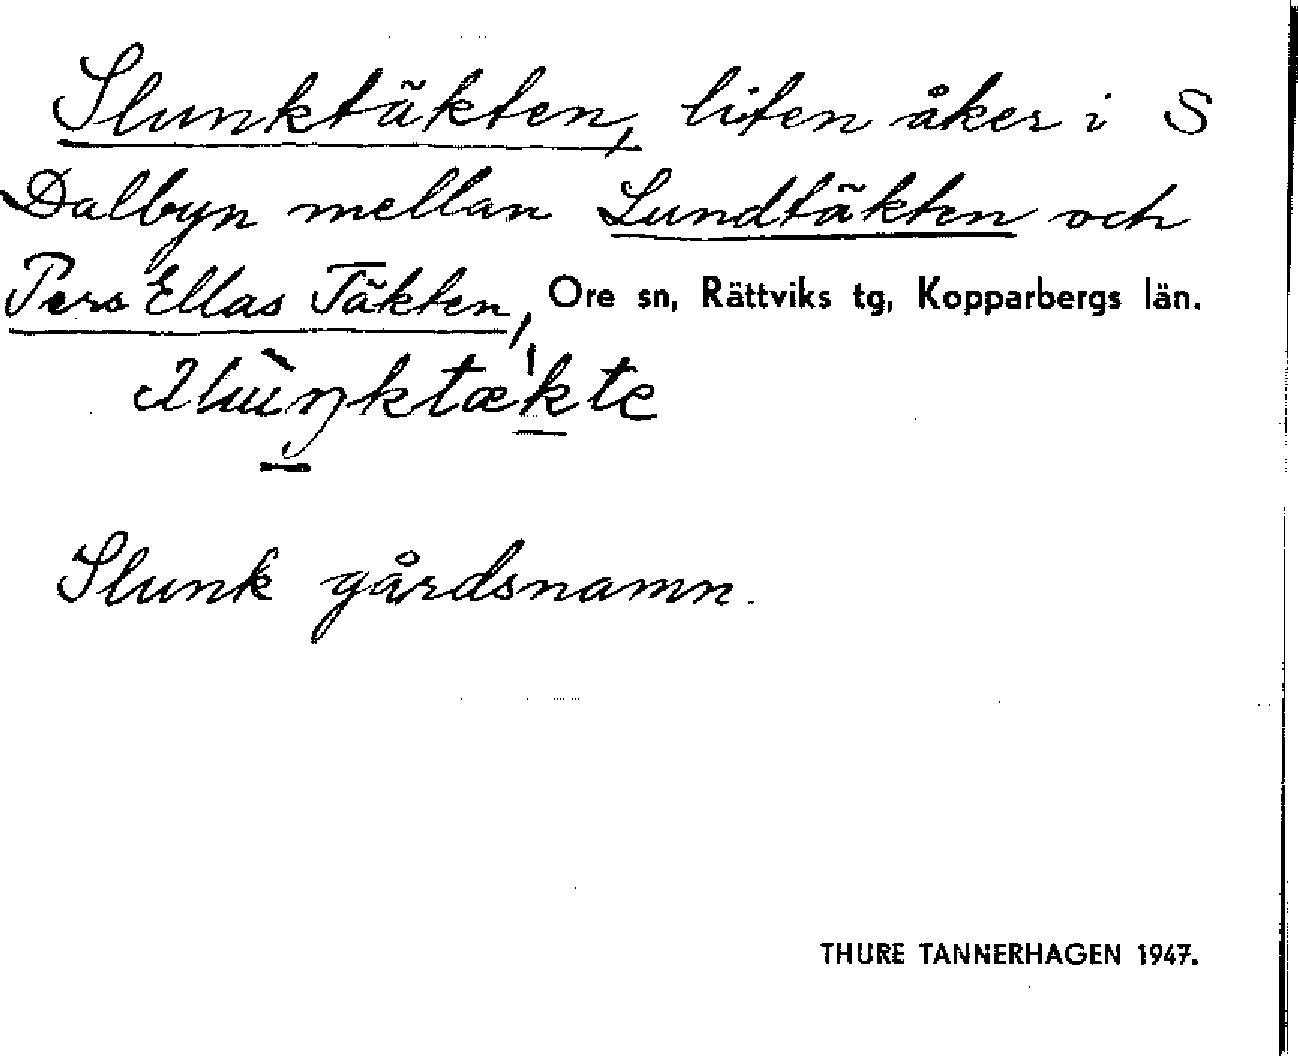 Slunktäkten, liten åker i S
Dalbyn mellan Lundtäkten och
Pers Ellas Täkten, Ore sn, Rättviks tg, Kopparbergs län.
Slunk gårdsnamn.
THURE TANNERHAGEN 1947.